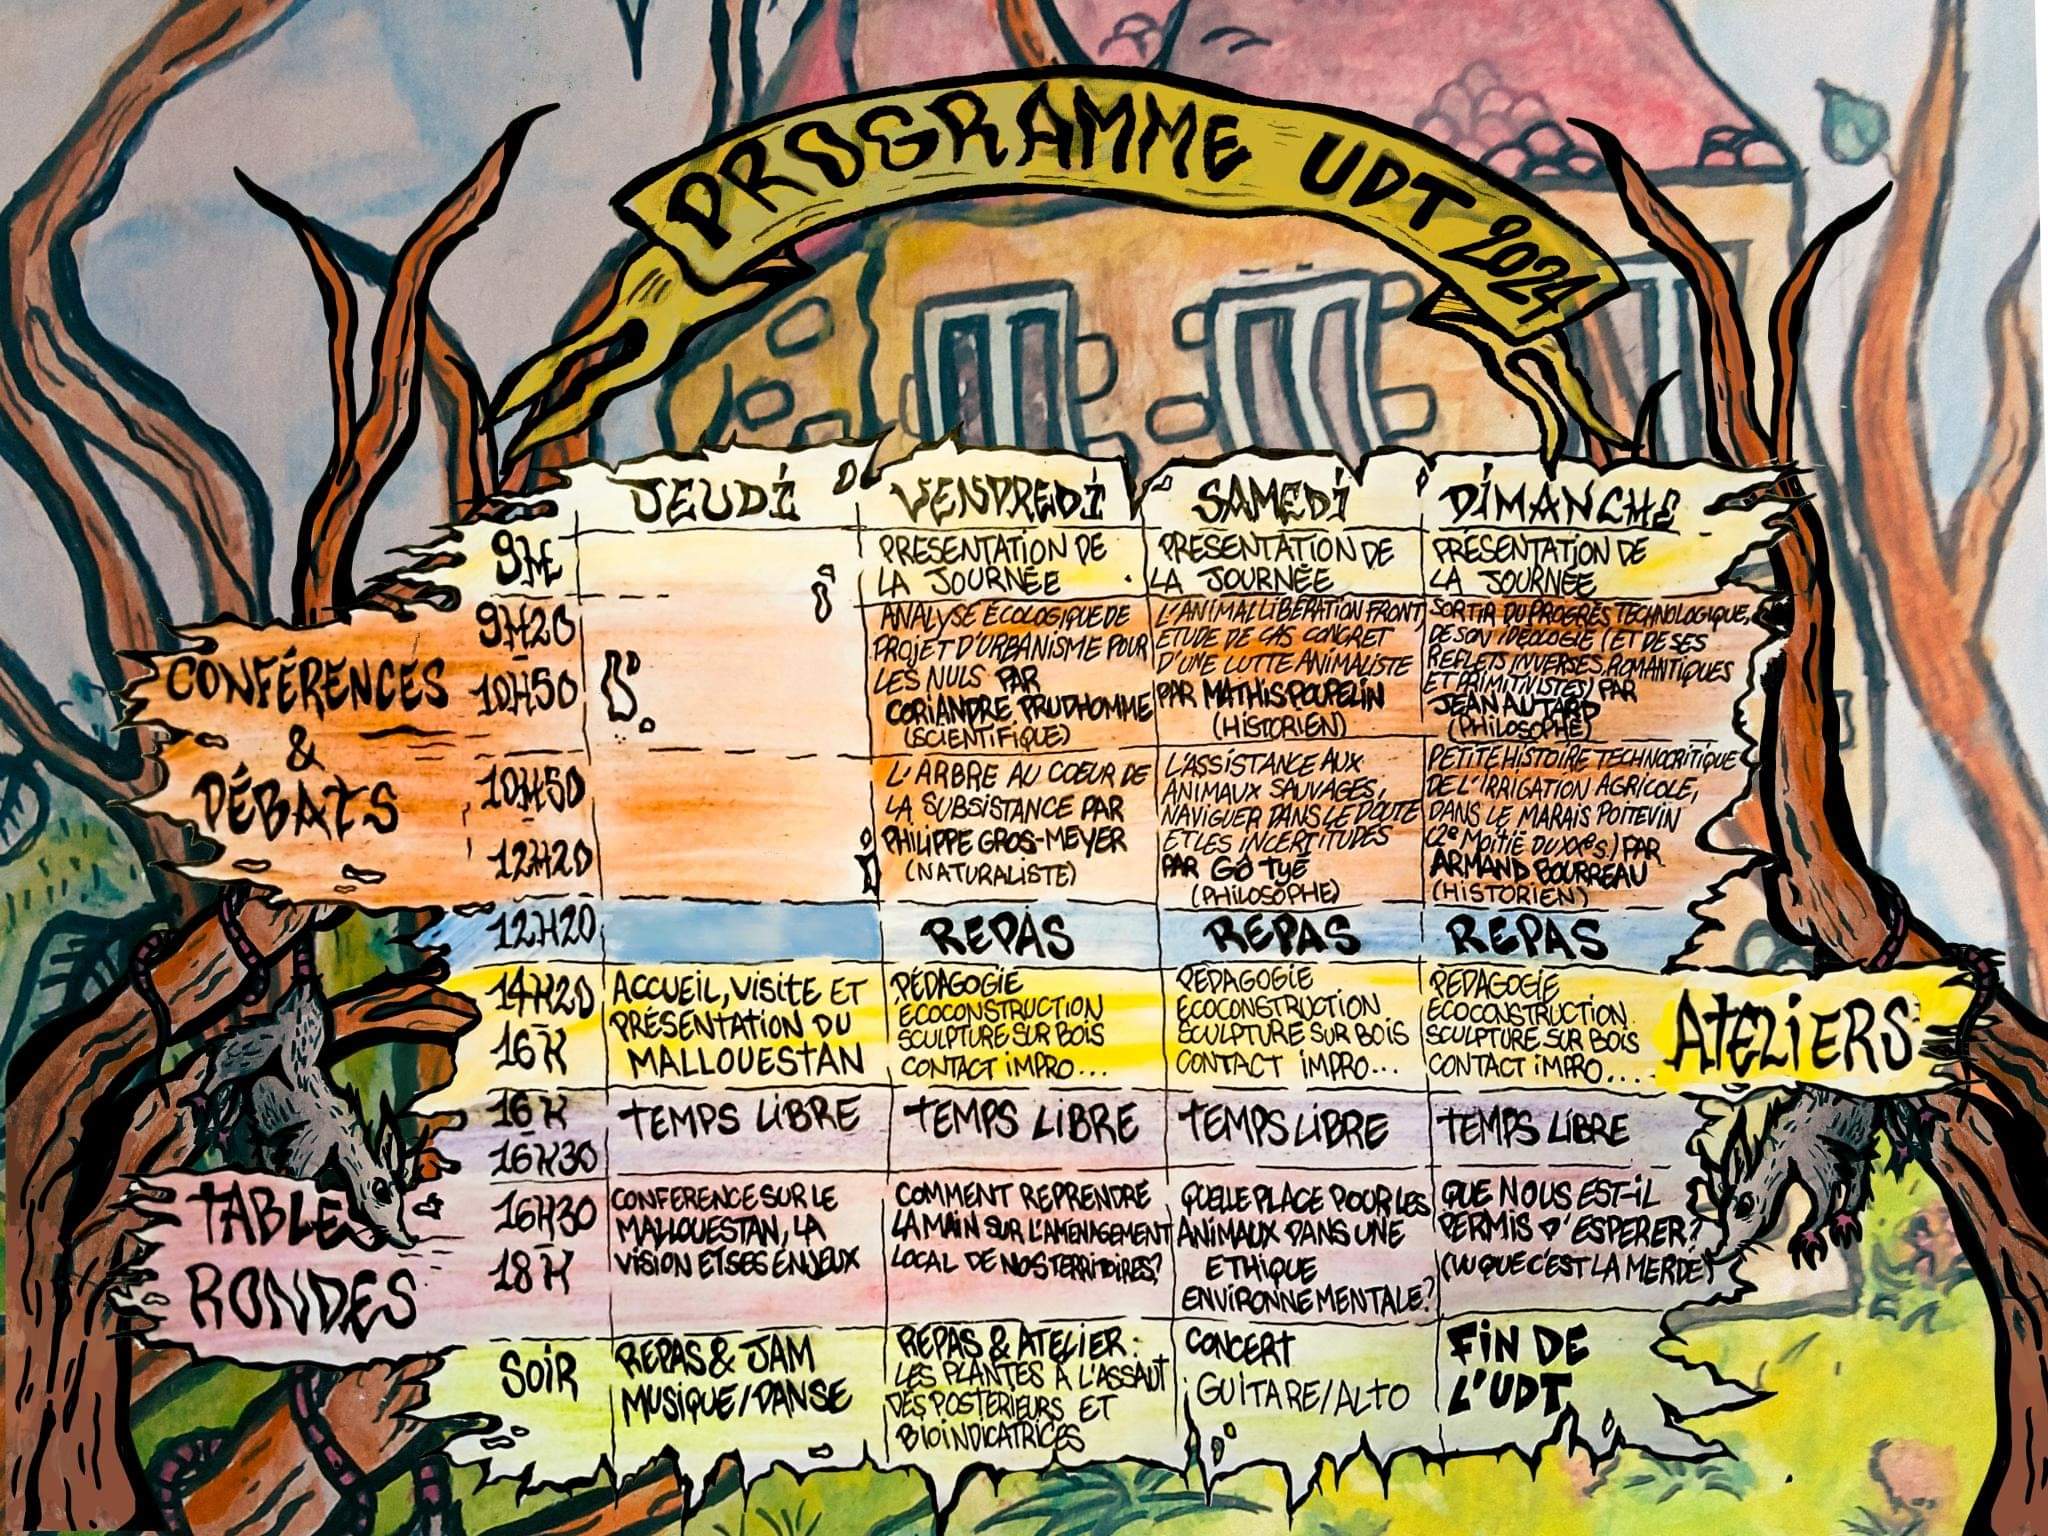 PROGRAMME UDT 2024
JEUDI
VENDREDI
SAMEDI
DIMANCHE
9H
PRÉSENTATION DE
LA JOURNÉE
PRÉSENTATION DE
LA JOURNÉE
PRÉSENTATION DE
LA JOURNÉE
CONFÉRENCES
&
DÉBATS
9H20
-
10H50
ANALYSE ÉCOLOGIQUE DE
PROJET D'URBANISME POUR
LES NULS PAR
CORIANDRE PRUDHOMME
(SCIENTIFIQUE)
L'ANIMAL LIBERATION FRONT,
ETUDE DE CAS CONCRET
D'UNE LUTTE ANIMALISTE
PAR MATHIS POUPELIN
(HISTORIEN)
SORTIR DU PROGRÈS TECHNOLOGIQUE,
DE SON IDÉOLOGIE (ET DE SES
REFLETS INVERSÉS, ROMANTIQUES
ET PRIMITIVISTES) PAR
JEAN AUTARD
(PHILOSOPHE)
10H50
-
12H20
L'ARBRE AU COEUR DE
LA SUBSISTANCE PAR
PHILIPPE GROS-MEYER
(NATURALISTE)
L'ASSISTANCE AUX
ANIMAUX SAUVAGES,
NAVIGUER DANS LE DOUTE
ET LES INCERTITUDES
PAR Gô Tyé
(PHILOSOPHE)
PETITE HISTOIRE TECHNOCRITIQUE
DE L'IRRIGATION AGRICOLE,
DANS LE MARAIS POITEVIN
(2e MOITIÉ DU XXe S.) PAR
ARMAND BOURREAU
(HISTORIEN)
12H20
REPAS
REPAS
REPAS
14H20
-
16H
ACCUEIL, VISITE ET
PRÉSENTATION DU
MALLOUESTAN
PÉDAGOGIE
ÉCOCONSTRUCTION
SCULPTURE SUR BOIS
CONTACT IMPRO...
PÉDAGOGIE
ECOCONSTRUCTION
SCULPTURE SUR BOIS
CONTACT IMPRO...
PÉDAGOGIE
ECOCONSTRUCTION
SCULPTURE SUR BOIS
CONTACT IMPRO...
ATELIERS
16H
-
16H30
TEMPS LIBRE
TEMPS LIBRE
TEMPS LIBRE
TEMPS LIBRE
TABLE
RONDES
16H30
-
18H
CONFERENCE SUR LE
MALLOUESTAN, LA
VISION ET SES ENJEUX
COMMENT REPRENDRE
LA MAIN SUR L'AMÉNAGEMENT
LOCAL DE NOS TERRITOIRES?
QUELLE PLACE POUR LES
ANIMAUX DANS UNE
ETHIQUE
ENVIRONNEMENTALE?
QUE NOUS EST-IL
PERMIS D'ESPERER?
(VU QUE C'EST LA MERDE)
SOIR
REPAS & JAM
MUSIQUE/DANSE
REPAS & ATELIER:
LES PLANTES À L'ASSAUT
DES POSTÉRIEURS ET
BIOINDICATRICES
CONCERT
GUITARE/ALTO
FIN DE
L'UDT